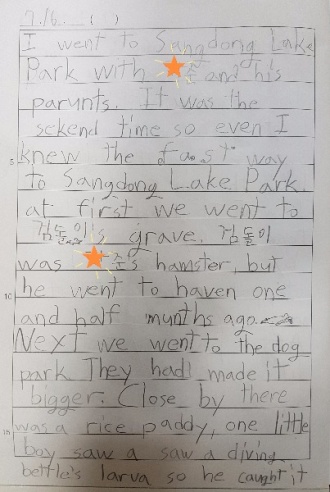 7.16. ( )
I went to Sangdong Lake
Park with and his
parunts. It was the
sekend time so even I
5 knew the fast way
to Sangdong Lake Park.
at first we went to
검돌이's grave. 검돌이
was 준's hamster, but
10 he went to haven one
and half munths ago.
Next we went to the dog
park. They had made it
bigger. Close by there
15 was a rice paddy, one little
boy saw a saw a diving
bettle's larva so he caught it